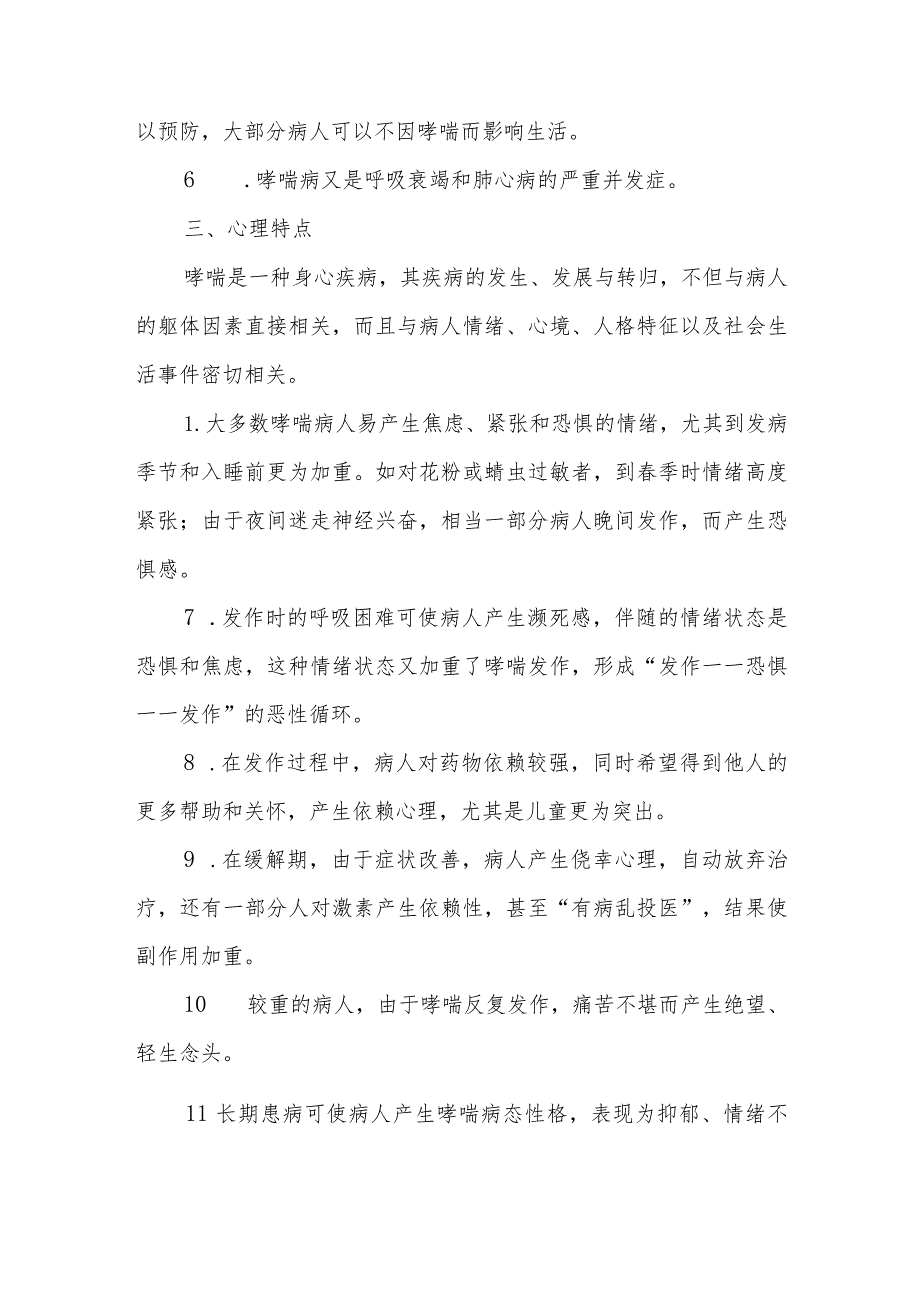 以预防，大部分病人可以不因哮喘而影响生活。
6 .哮喘病又是呼吸衰竭和肺心病的严重并发症。
三、心理特点
哮喘是一种身心疾病，其疾病的发生、发展与转归，不但与病人
的躯体因素直接相关，而且与病人情绪、心境、人格特征以及社会生
活事件密切相关。
1.大多数哮喘病人易产生焦虑、紧张和恐惧的情绪，尤其到发病
季节和入睡前更为加重。如对花粉或蜻虫过敏者，到春季时情绪高度
紧张；由于夜间迷走神经兴奋，相当一部分病人晚间发作，而产生恐
惧感。
7 .发作时的呼吸困难可使病人产生濒死感，伴随的情绪状态是
恐惧和焦虑，这种情绪状态又加重了哮喘发作，形成“发作一一恐惧
一一发作”的恶性循环。
8 .在发作过程中，病人对药物依赖较强，同时希望得到他人的
更多帮助和关怀，产生依赖心理，尤其是儿童更为突出。
9 .在缓解期，由于症状改善，病人产生侥幸心理，自动放弃治
疗，还有一部分人对激素产生依赖性，甚至“有病乱投医”，结果使
副作用加重。
10 较重的病人，由于哮喘反复发作，痛苦不堪而产生绝望、
轻生念头。
11 长期患病可使病人产生哮喘病态性格，表现为抑郁、情绪不